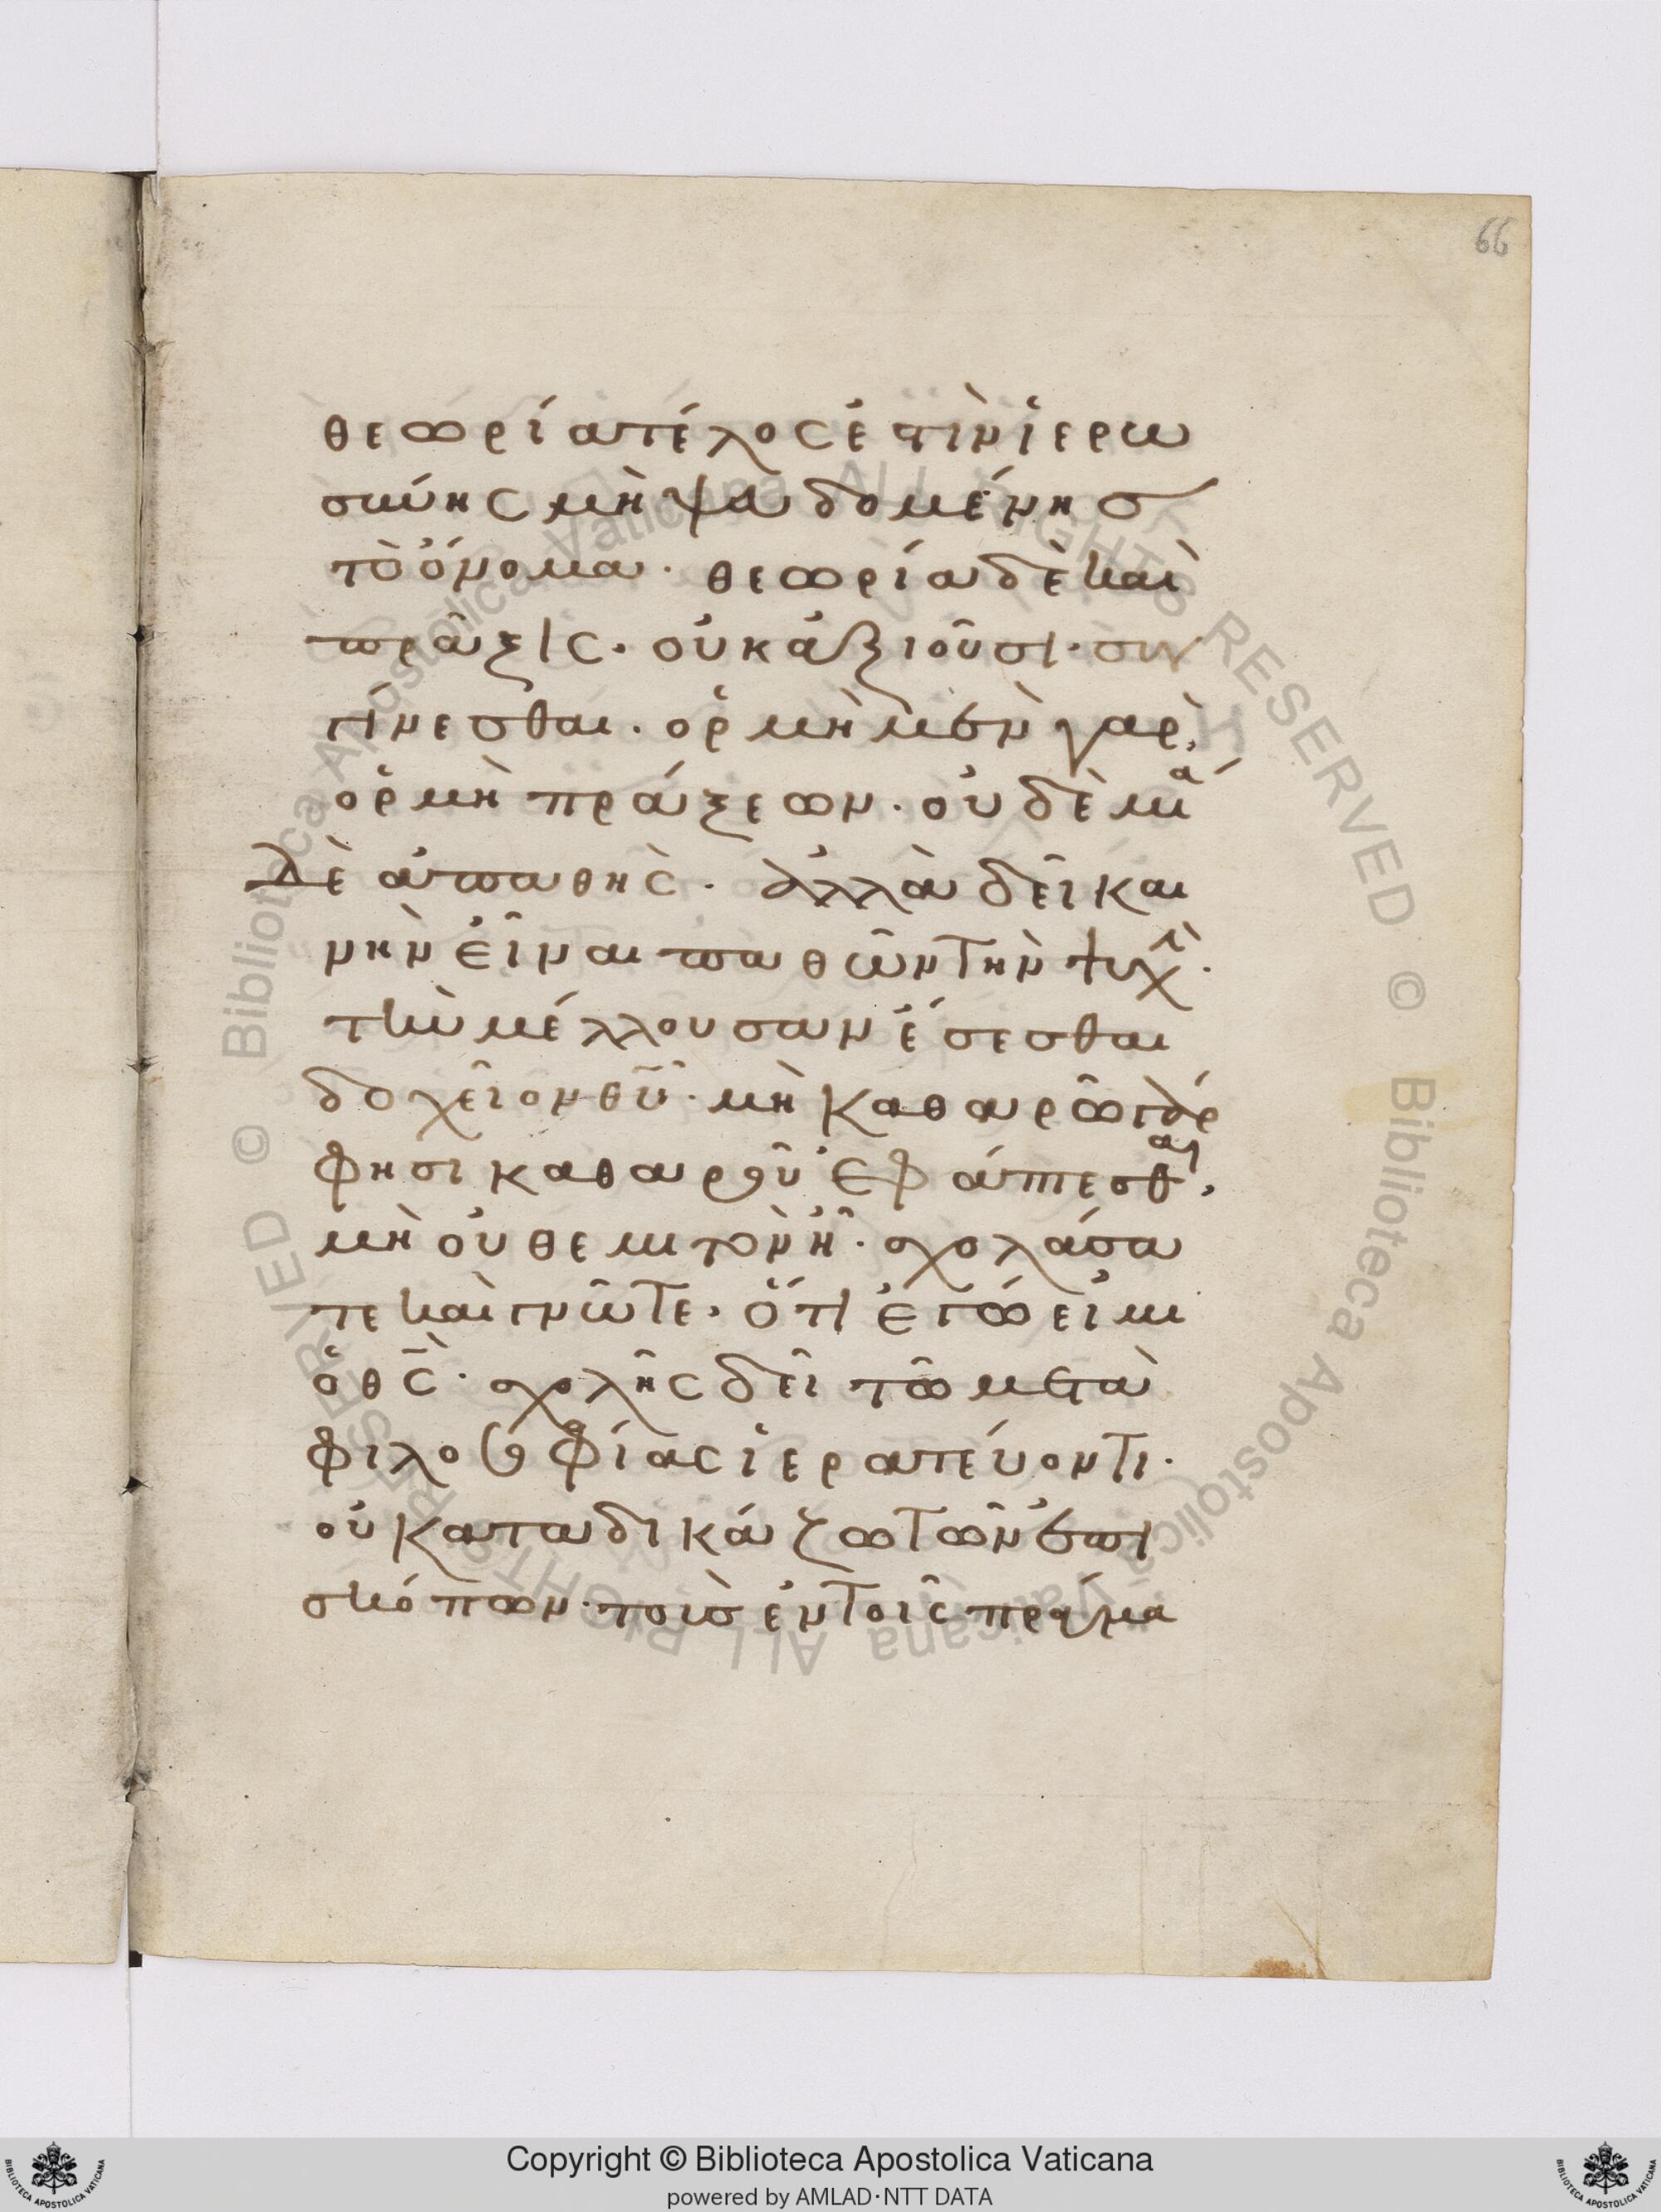 66
θεωρία τέλος ἐστὶν ἱερω
σύνης μὴ ψευδομένης
τὸ ὄνομα· θεωρία δὲ καὶ
πρᾶξις· οὐκ ἀξιοῦσι· συγ
γίνεσθαι· ὁρμὴ μὲν γὰρ,
ὁρμὴ πράξεων· οὐδὲ μία
δὲ ἀπαθὴς· ἀλλὰ δεῖ και
νὴν εἶναι παθῶν τὴν ψυχὴν·
τὴν μέλλουσαν ἔσεσθαι
δοχεῖον θῦ· μὴ καθαρῶ γάρ
φησι καθαροῦ ἐφάπτεσθαι,
μὴ οὐ θεμιτὸν ἦ· σχολάσα
τε καὶ γνῶτε, ὅτι ἐγώ εἰμι
ὁ θς· σχολῆς δεῖ τῶ μετὰ
φιλοσοφίας ἱερατεύοντι·
οὐ καταδικάζω τῶν ἐπι
σκόπων· τοὺς ἐν τοῖς πράγμα
Copyright © Biblioteca Apostolica Vaticana
powered by AMLAD·NTT DATA